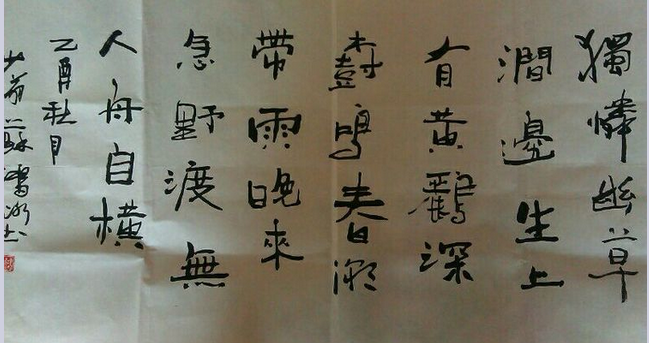 獨憐幽草
澗邊生上
有黃鸝深
樹鳴春潮
帶雨晚來
急野渡無
人舟自橫
乙酉秋月
少翁蘇